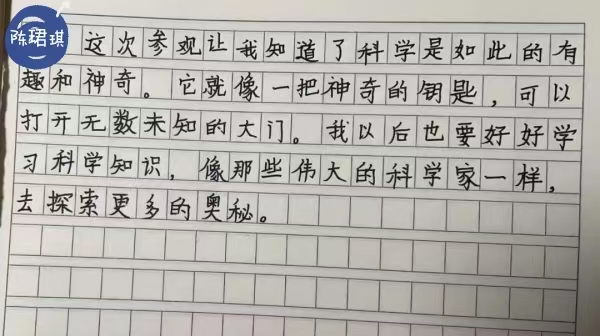 陈珺琪
这次参观让我知道了科学是如此的有
趣和神奇。它就像一把神奇的钥匙，可以
打开无数未知的大门。我以后也要好好学
习科学知识，像那些伟大的科学家一样，
去探索更多的奥秘。